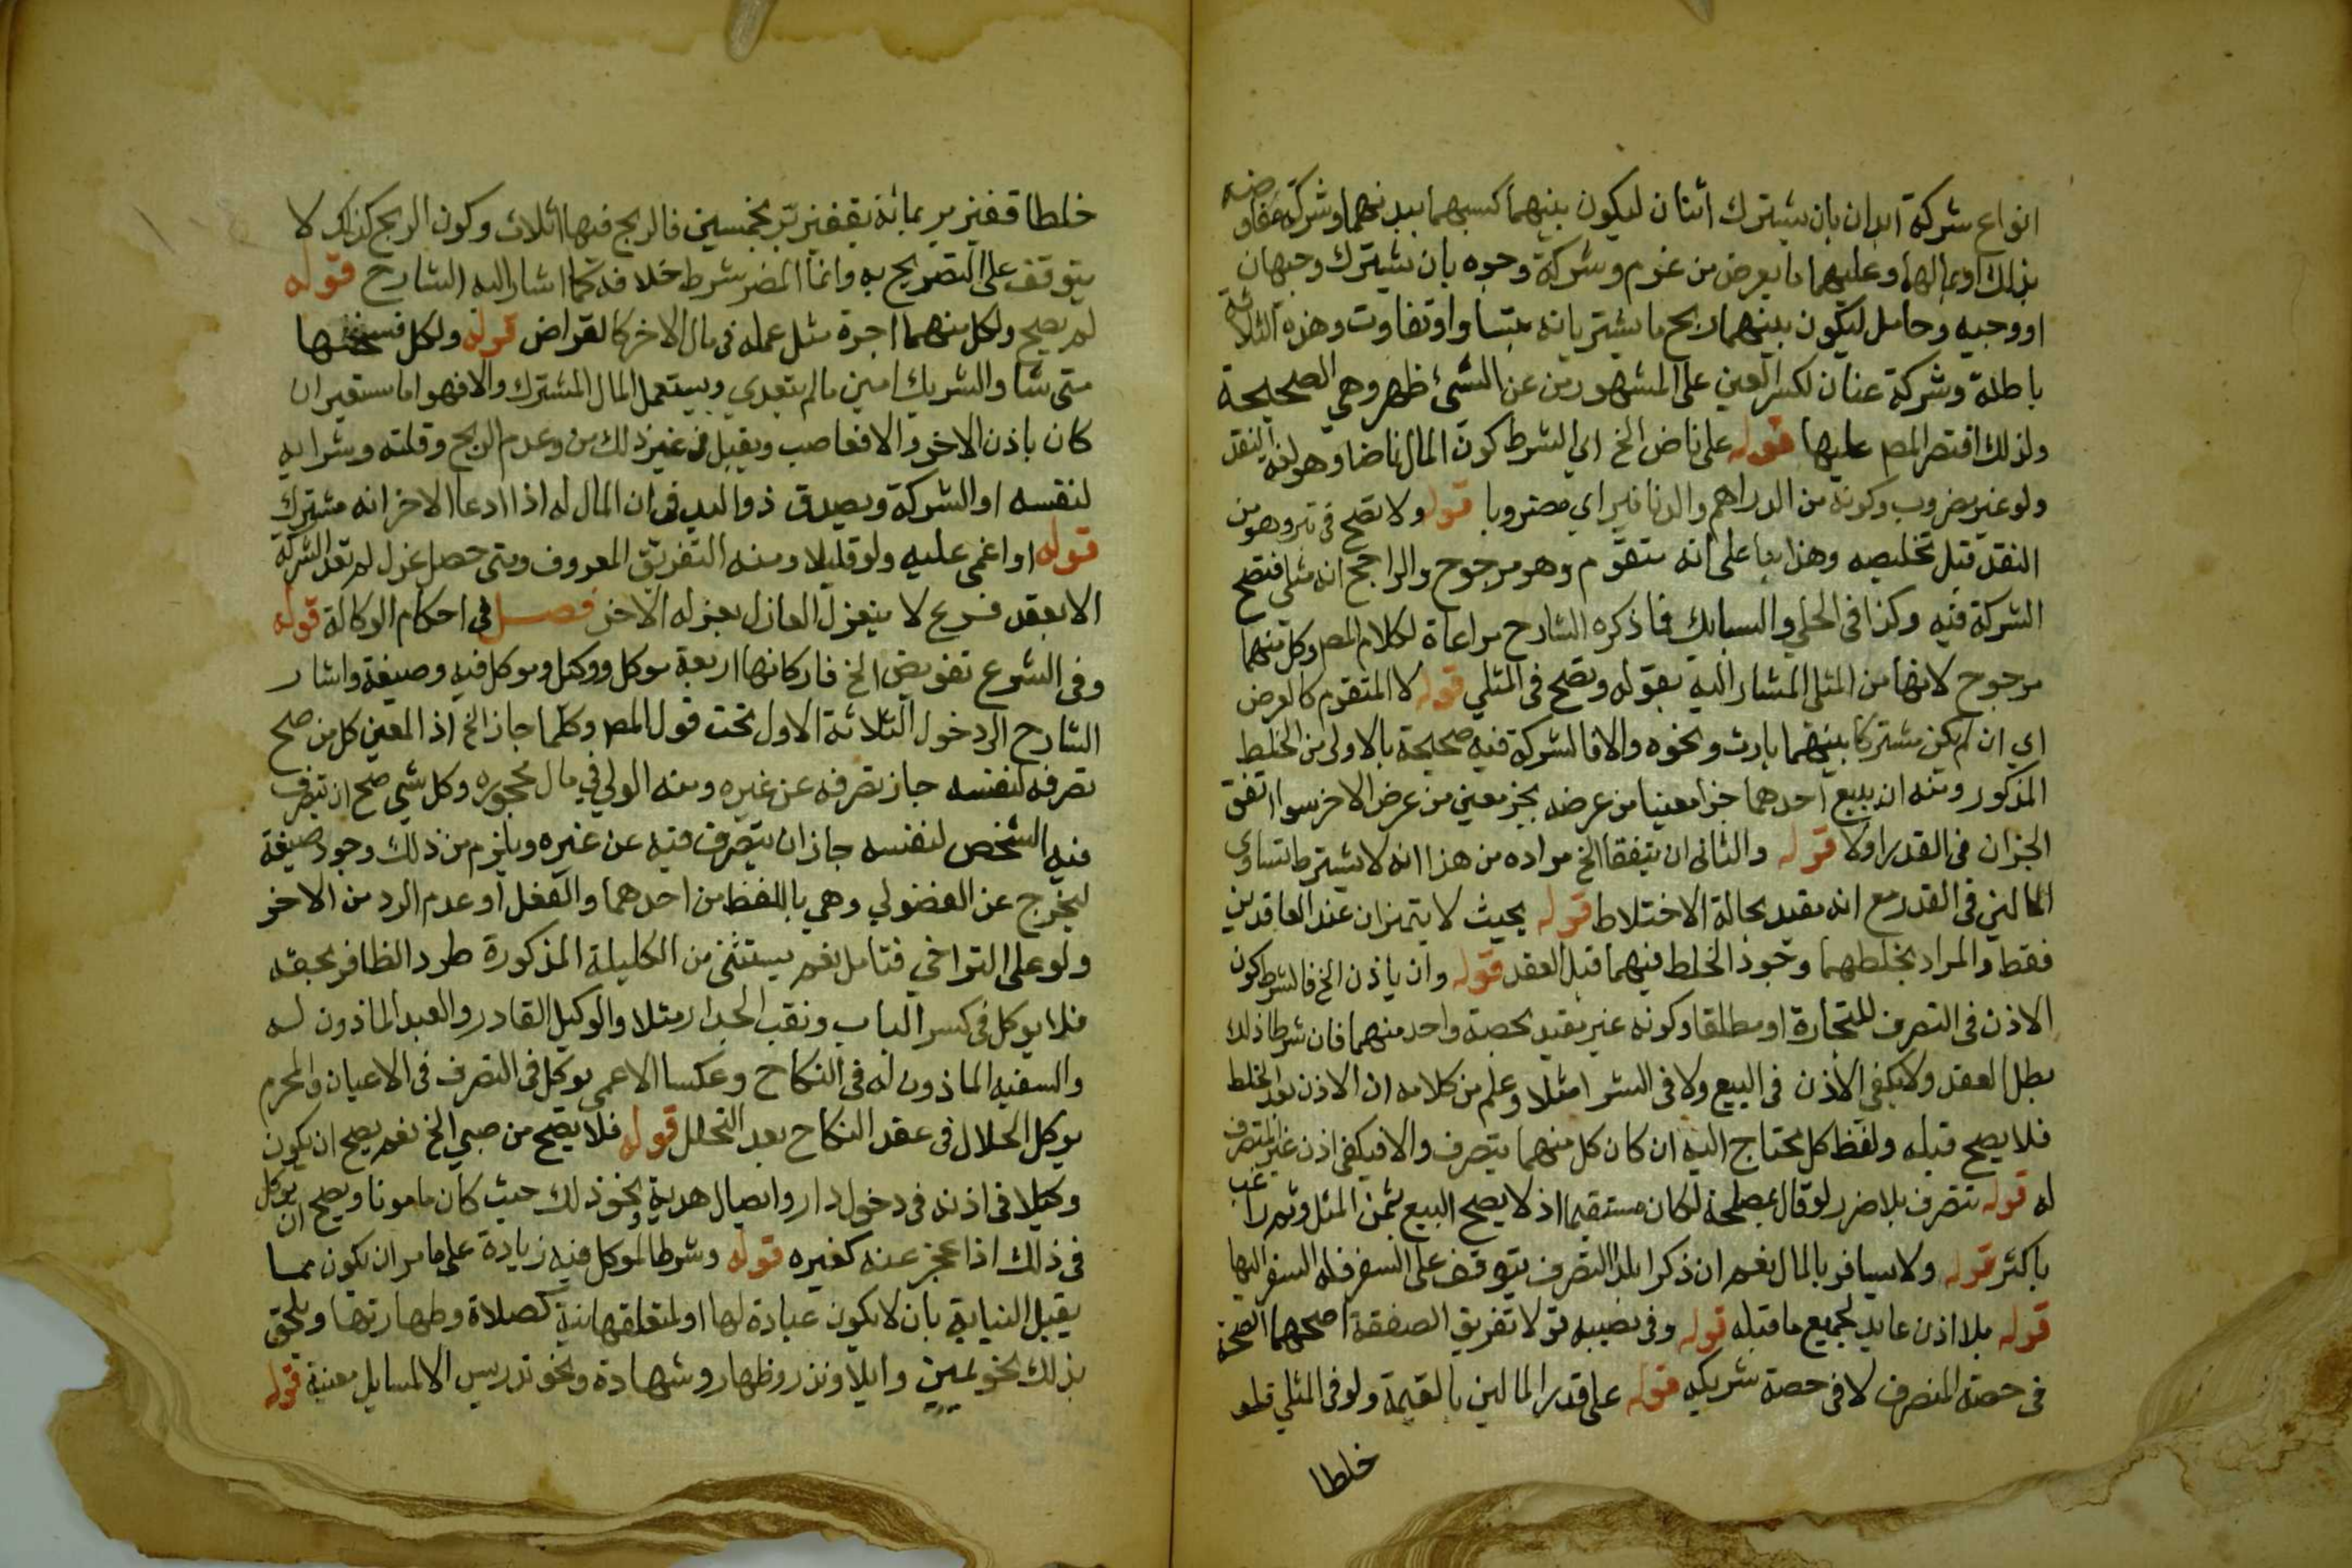 انواع شركة ابدان بان يشترك اثنان ليكون بينهما كسبهما ببدنهما وشركة مفاوضه
بذلك او بمالهما وعليهما ما يعرض من غرم وشركة وجوه بان يشترك وجيهان
او وجيه وخامل ليكون بينهما ربح ما يشتريانه بتساو او تفاوت وهذه الثلاثة
باطلة وشركة عنان لكسر العين على المشهور من عن الشئ ظهر وهي الصحيحة
ولذلك اقتصر المص عليها قوله على ناض الخ اي الشرط كون المال ناضا وهو لغة النقد
ولو غير مضروب وكونه من الدراهم والدنانير اي مضروبا قوله ولا تصح في تبر وهو من
النقد قبل تخليصه وهذا بنا على انه متقوم وهو مرجوح والراجح انه مثلى فتصح
الشركة فيه وكذا في الحلي والسبايك فما ذكره الشارح مراعاة لكلام المص وكل منهما
مرجوح لانها من المثلى المشار اليه بقوله وتصح في المثلي قوله لا المتقوم كالعرض
اي ان لم يكن مشتركا بينهما بارث ونحوه والا فالشركة فيه صحيحة بالاولى من الخلط
المذكور ومنه ان يبيع احدهما جزا معينا من عرضه بجز معين من عرض الاخر سوا اتفق
الجزان في القدر اولا قوله والثانى ان يتفقا الخ مراده من هذا انه لا يشترط تساوي
المالين في القدر مع انه مقيد بحالة الاختلاط قوله بحيث لا يتميزان عند العاقدين
فقط والمراد بخلطهما وجود الخلط فيهما قبل العقد قوله وان ياذن الخ فالشرط كون
الاذن في التصرف للتجارة او مطلقا وكونه غير مقيد بحصة واحد منهما فان شرطا ذلك
بطل العقد ولا يكفي الاذن في البيع ولا في الشرا مثلا وعلم من كلامه ان الاذن بعد الخلط
فلا يصح قبله ولفظ كل محتاج اليه ان كان كل منهما يتصرف والا فيكفي اذن غير المتصرف
له قوله يتصرف بلا ضرر لو قال بمصلحة لكان مستقيما اذ لا يصح البيع بثمن المثل وثم راغب
باكثر قوله ولا يسافر بالمال نعم ان ذكرا بلد التصرف يتوقف على السفر فله السفر اليها
قوله بلا اذن عايد لجميع ما قبله قوله وفي نصيبه قولا تفريق الصفقة اصحهما الصحة
في حصة المتصرف لا في حصة شريكه قوله على قدر المالين بالقيمة ولو في المثلي فلو
خلطا
خلطا قفيز بر بمائة بقفيز بر بخمسين فالربح فيها اثلاث وكون الربح كذلك لا
يتوقف على التصريح به وانما المضر شرط خلافه كما اشار اليه الشارح قوله
لم يصح ولكل منهما اجرة مثل عمله في مال الاخر كالقراض قوله ولكل فسخها
متى شا والشريك امين مالم يتعدي ويستعمل المال المشترك والا فهو اما مستعير ان
كان باذن الاخر والا فغاصب ويقبل في غير ذلك من وعدم الربح وقلته وشرايه
لنفسه او الشركة ويصدق ذو اليد في ان المال له اذا ادعا الاخر انه مشترك
قوله او اغمي عليه ولو قليلا ومنه التفريق المعروف ومتى حصل عزل لم تعد الشركة
الا بعقد فرع لا ينعزل العازل بعزله الاخر فصل في احكام الوكالة قوله
وفى الشرع تفويض الخ فاركانها اربعة موكل ووكيل وموكل فيه وصيغة واشار
الشارح الى دخول الثلاثة الاول تحت قول المص وكلما جاز الخ اذ المعين كل من صح
تصرفه لنفسه جاز تصرفه عن غيره ومنه الولي في مال محجوره وكل شي صح ان يتصرف
فيه الشخص لنفسه جاز ان يتصرف فيه عن غيره ويلزم من ذلك وجود صيغة
ليخرج عن الفضولي وهي باللفظ من احدهما والفعل او عدم الرد من الاخر
ولو على التراخي فتامل نعم يستثنى من الكليلة المذكورة طرد الظافر بحقه
فلا يوكل في كسر الباب ونقب الجدار مثلا والوكيل القادر والعبد الماذون له
والسفيه الماذون له في النكاح وعكسا الاعمى يوكل في التصرف في الاعيان والمحرم
يوكل الحلال في عقد النكاح بعد التحلل قوله فلا يصح من صبي الخ نعم يصح ان يكون
وكيلا في اذنه في دخول دار وايصال هدية ونحو ذلك حيث كان مامونا ويصح ان يوكل
في ذلك اذا عجز عنه كغيره قوله وشرط الموكل فيه زيادة على ما مر ان يكون مما
يقبل النيابة بان لا يكون عبادة لها او لمتعلقها نية كصلاة وطهارتها ويلحق
بذلك نحو يمين وايلا ونذر وظهار وشهادة ونحو تدريس الا لمسايل معينة قوله